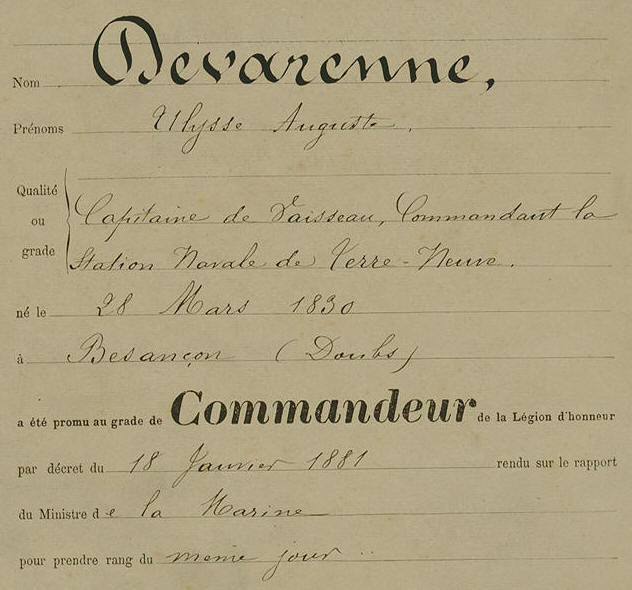 Nom Devarenne,
Prénoms Ulysse Auguste.
Qualité ou grade
Capitaine de Vaisseau, Commandant la
Station Navale de Terre-Neuve.
né le 28 Mars 1830
à Besançon (Doubs)
a été promu au grade de Commandeur de la Légion d'honneur
par décret du 18 Janvier 1881 rendu sur le rapport
du Ministre de la Marine
pour prendre rang du même jour